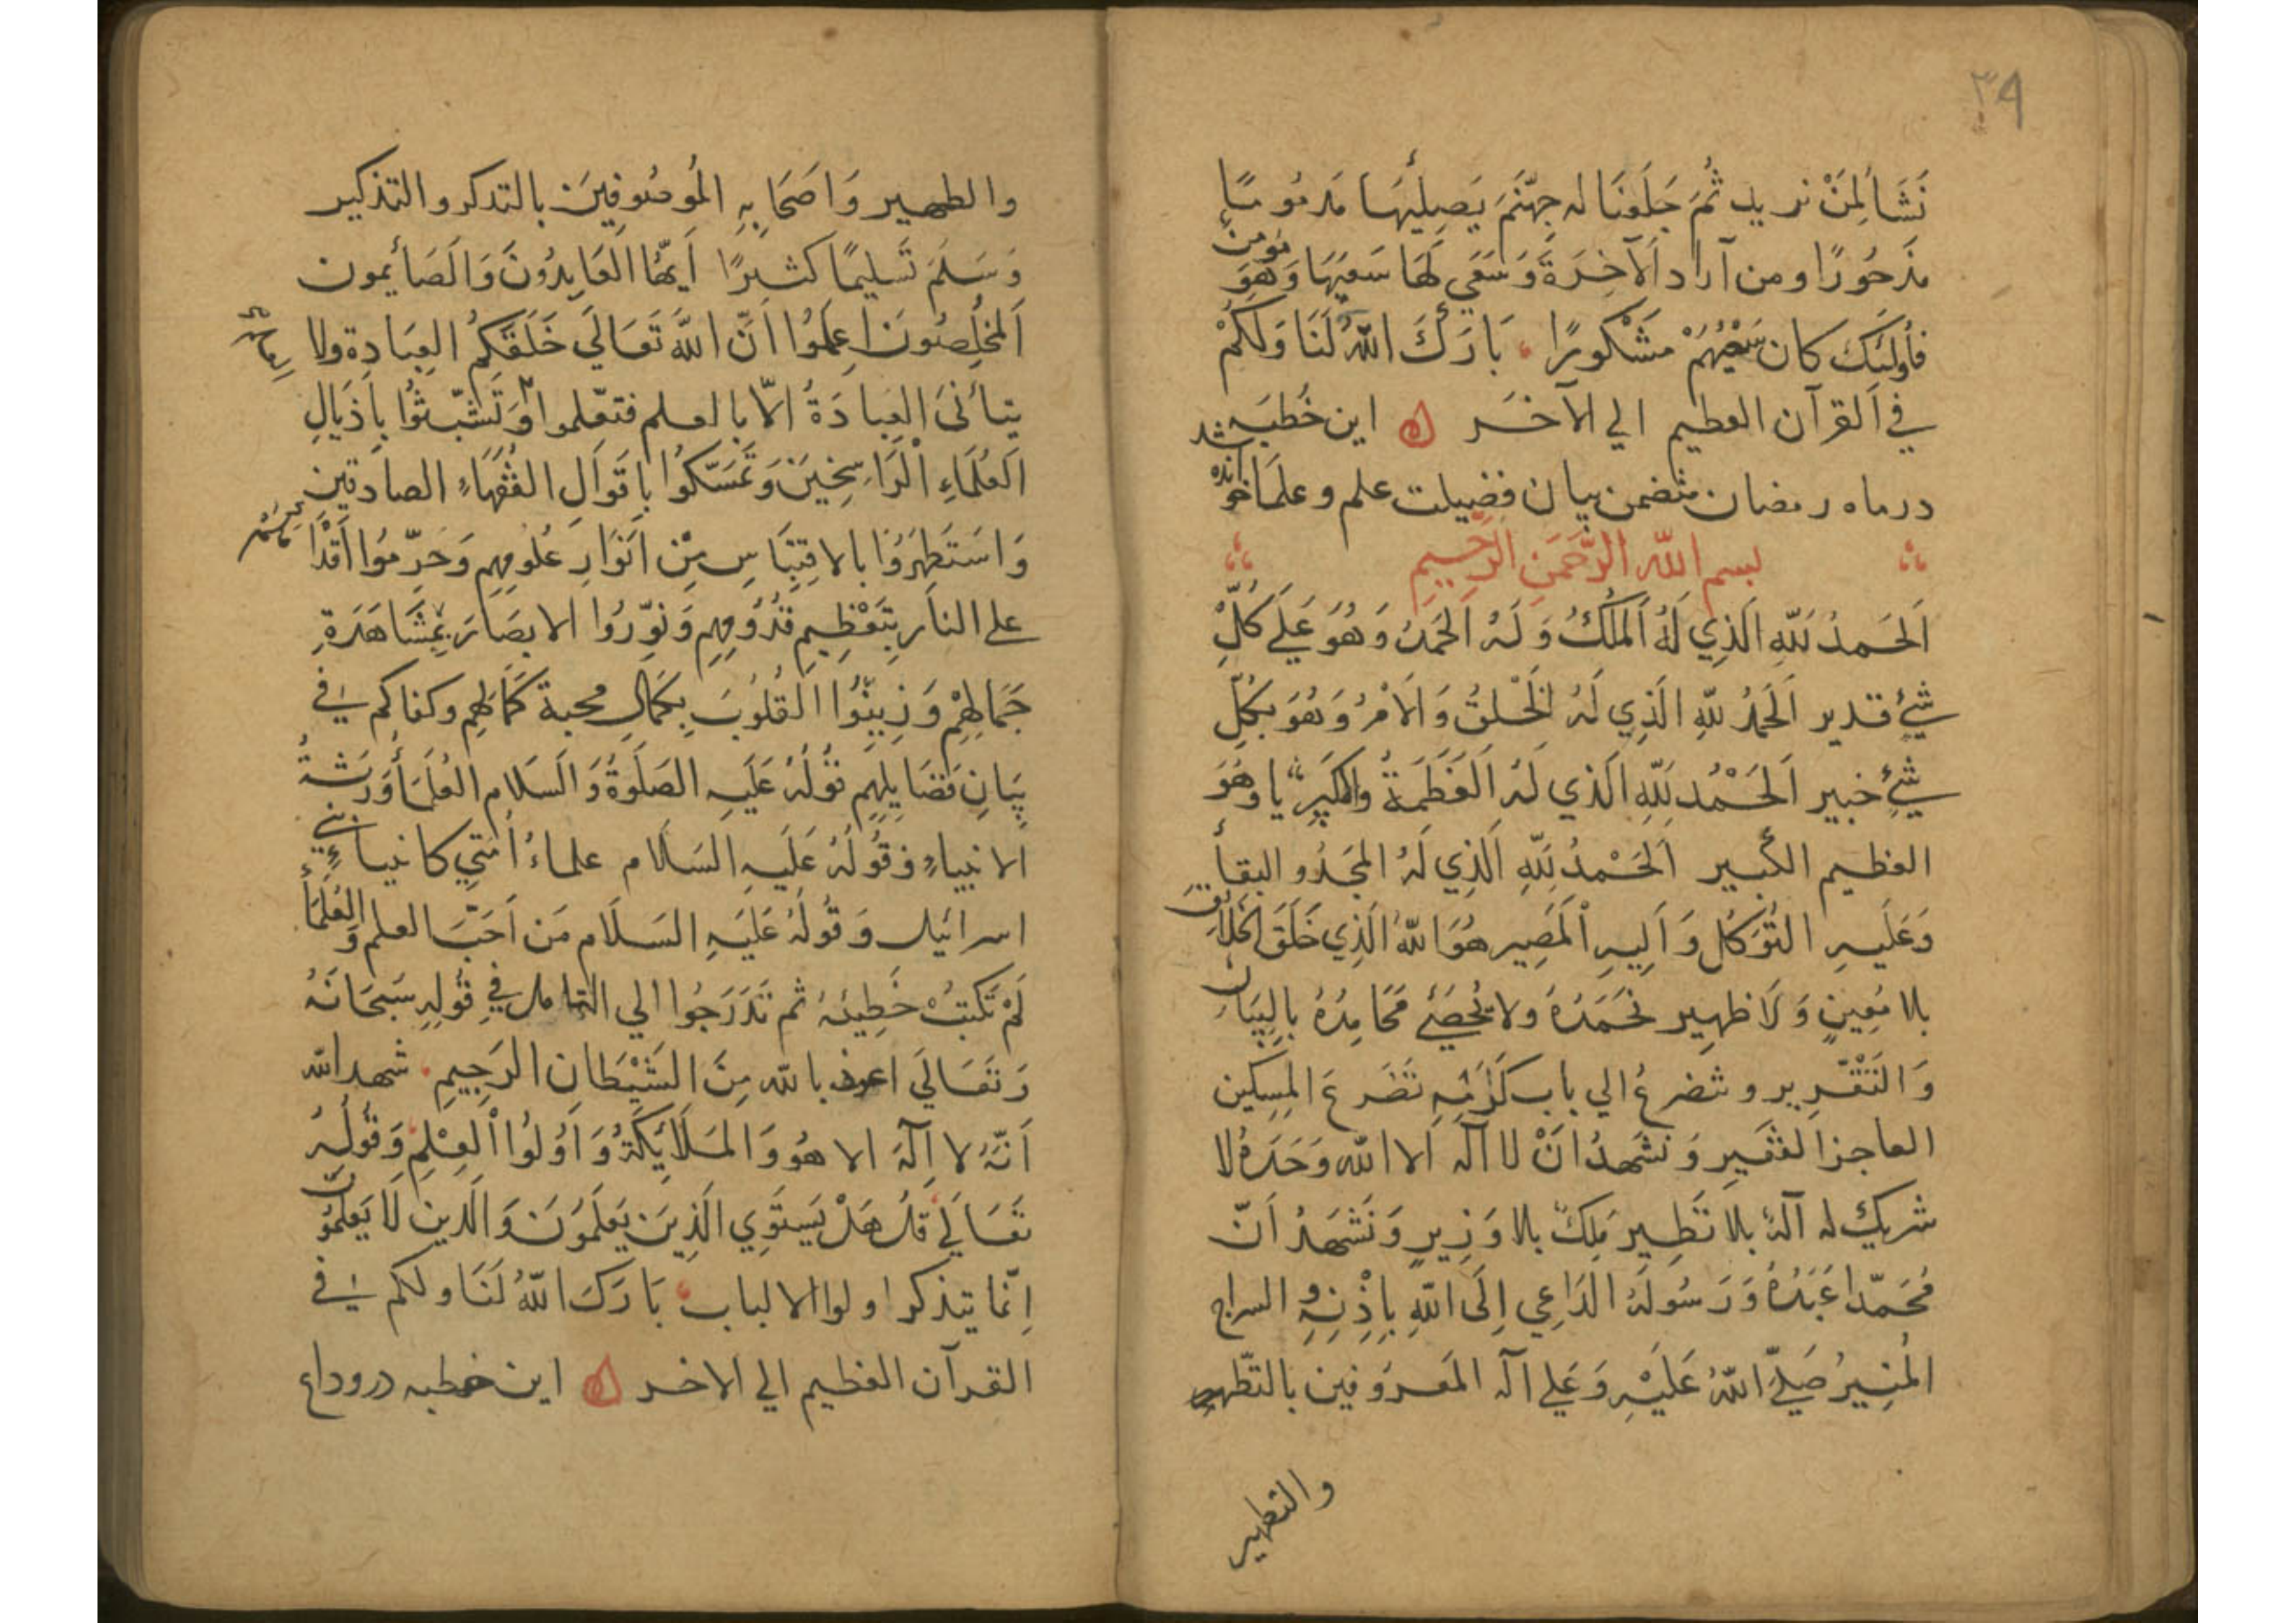 ٣٩
نَشَآءُ لِمَنْ نريد ثُمَّ جَعَلْنَا له جَهَنَّمَ يَصِلَيهَا مَذمُومًا
مَدحُورًا ومن آراد الآخِرَةَ وَسَعَي لَهَا سَعيَهَا وَهُوَ مؤمن
فأولئك كان سَعْيُهُمْ مَشْكورًا بَارَكَ اللهُ لَنَا وَلَكُمْ
في القرآن العظيم الي الآخَر اين خُطبَه
درماه رمضان متضمن بيان فضيلت علم وعلما خوانده شد
بسم الله الرَّحمَنِ الرَّحِيمِ
اَلحَمدُ لِلّهِ الَّذِي لَهُ المُلكُ وَلَهُ الحَمدُ وَهُوَ عَلَي كُلِّ
شَيْءٍ قدير اَلحَمدُ لِلّهِ الَّذِي لَهُ الخَلقُ وَالاَمْرُ وَهُوَ بِكُلِّ
شَيْءٍ خبير اَلحَمْدُ لِلّهِ الَّذي لَهُ العَظَمَةُ والكِبرِيَا وَهُوَ
العظيم الكبير اَلحَمْدُ لِلّهِ الَّذِي لَهُ المَجدُ والبقأ
وَعَلَيهِ التَوَكُل وَاِلَيهِ المَصِير هُوَ اللهُ الَّذِي خَلَقَ الخَلائِقَ
بلا مُعِينٍ وَلَا ظهير نَحمَدُهُ ولا يُحصَي مَحَامِدُهُ بِالبَيَان
وَالتَقْرِيرِ ونتضرعُ الي باب كَرَمِهِ تَضَرعَ المِسكين
العاجز الفَقير وَنَشهدُ اَنْ لا اله الا الله وَحَدَهُ لا
شريك له آلهٌ بلا نَظِيرٍ مَلِكٌ بلا وَزِيرٍ وَنَشْهَدُ اَنّ
مُحَمّدا عَبَدُهُ وَرَسُولُهُ الدَاعِي اِلَى اللهِ بِاِذْنِهِ و السراج
المُنِيرُ صَلَّي اللهُ عَلَيْهِ وَعَلي آله المَعرُوفين بالتّطهير
والتطهير
والطهير وَاَصحَابِهِ المَوصُوفِينَ بالتدكر والتذكير
وَسَلَّمَ تَسليمًا كثيرًا اَيهّا العَابِدُونَ وَالصَائمون
اَلمخلِصُونَ اِعلَمُوا اَنَّ اللهَ تَعَالَي خَلَقَكُم العِبَادِة ولا
يتأتى العِبادَةُ الّا بالعلم فتعّلموا وَتَشَبّثُوا بِاَذيَالِ
العُلَمَاءِ الرَاسِخِينَ وَتَمَسّكُوا بِاَقوَالِ الفُقَهَاءِ الصادقين
وَاستَظهِرُوا بالاقتِبَاسِ مِن اَنوَارِ عُلُومِهِم وَحَرِّمُوا اَقدَا مَهُم
علي النار بِتَعْظِيمِ قُدُومِهِم وَنوّرُوا الابصَارَ بِمُشَاهَدَةِ
جَمَالِهِمْ وَزَيِّنُوا القُلُوبَ بِكَمَالِ محبة كَمَالِهِم وكفاكم في
بَيَانِ فَضَايِلِهِم قَولُهُ عَلَيهِ الصَلَوةُ وَالسَلام العُلَمَأُ وَرَثَةُ
الانبياءِ وقَولُهُ عَلَيهِ السَلام علماءُ اُمّتِي كانبياءِ بني
اسرائيل وَقَولُهُ عَلَيهِ السَلَام مَن اَحَبَّ العلم وَالعُلَمَأَ
لَمْ تُكتَبْ خَطِيئتُهُ ثم تَدَرَجُوا الي التامل في قَولِهِ سُبحَانَهُ
وَتَعَالَي اعوذ بالله مِنَ الشَيْطَانِ الرَجِيمِ شهد الله
اَنَّهُ لا اِلهَ الا هُوَ وَالمَلَائِكَةُ وَاُولُوا العِلْمِ وَقَولُهُ
تَعَالَي قُل هَلْ يَستَوِي الَّذِينَ يَعلَمُونَ وَالَّذين لَا يَعلَمُون
اِنّما يتذكر اولوا الالباب بَارَكَ اللهُ لَنَا ولكم في
القرآن العظيم الي الاخر اين خطبه دروداع